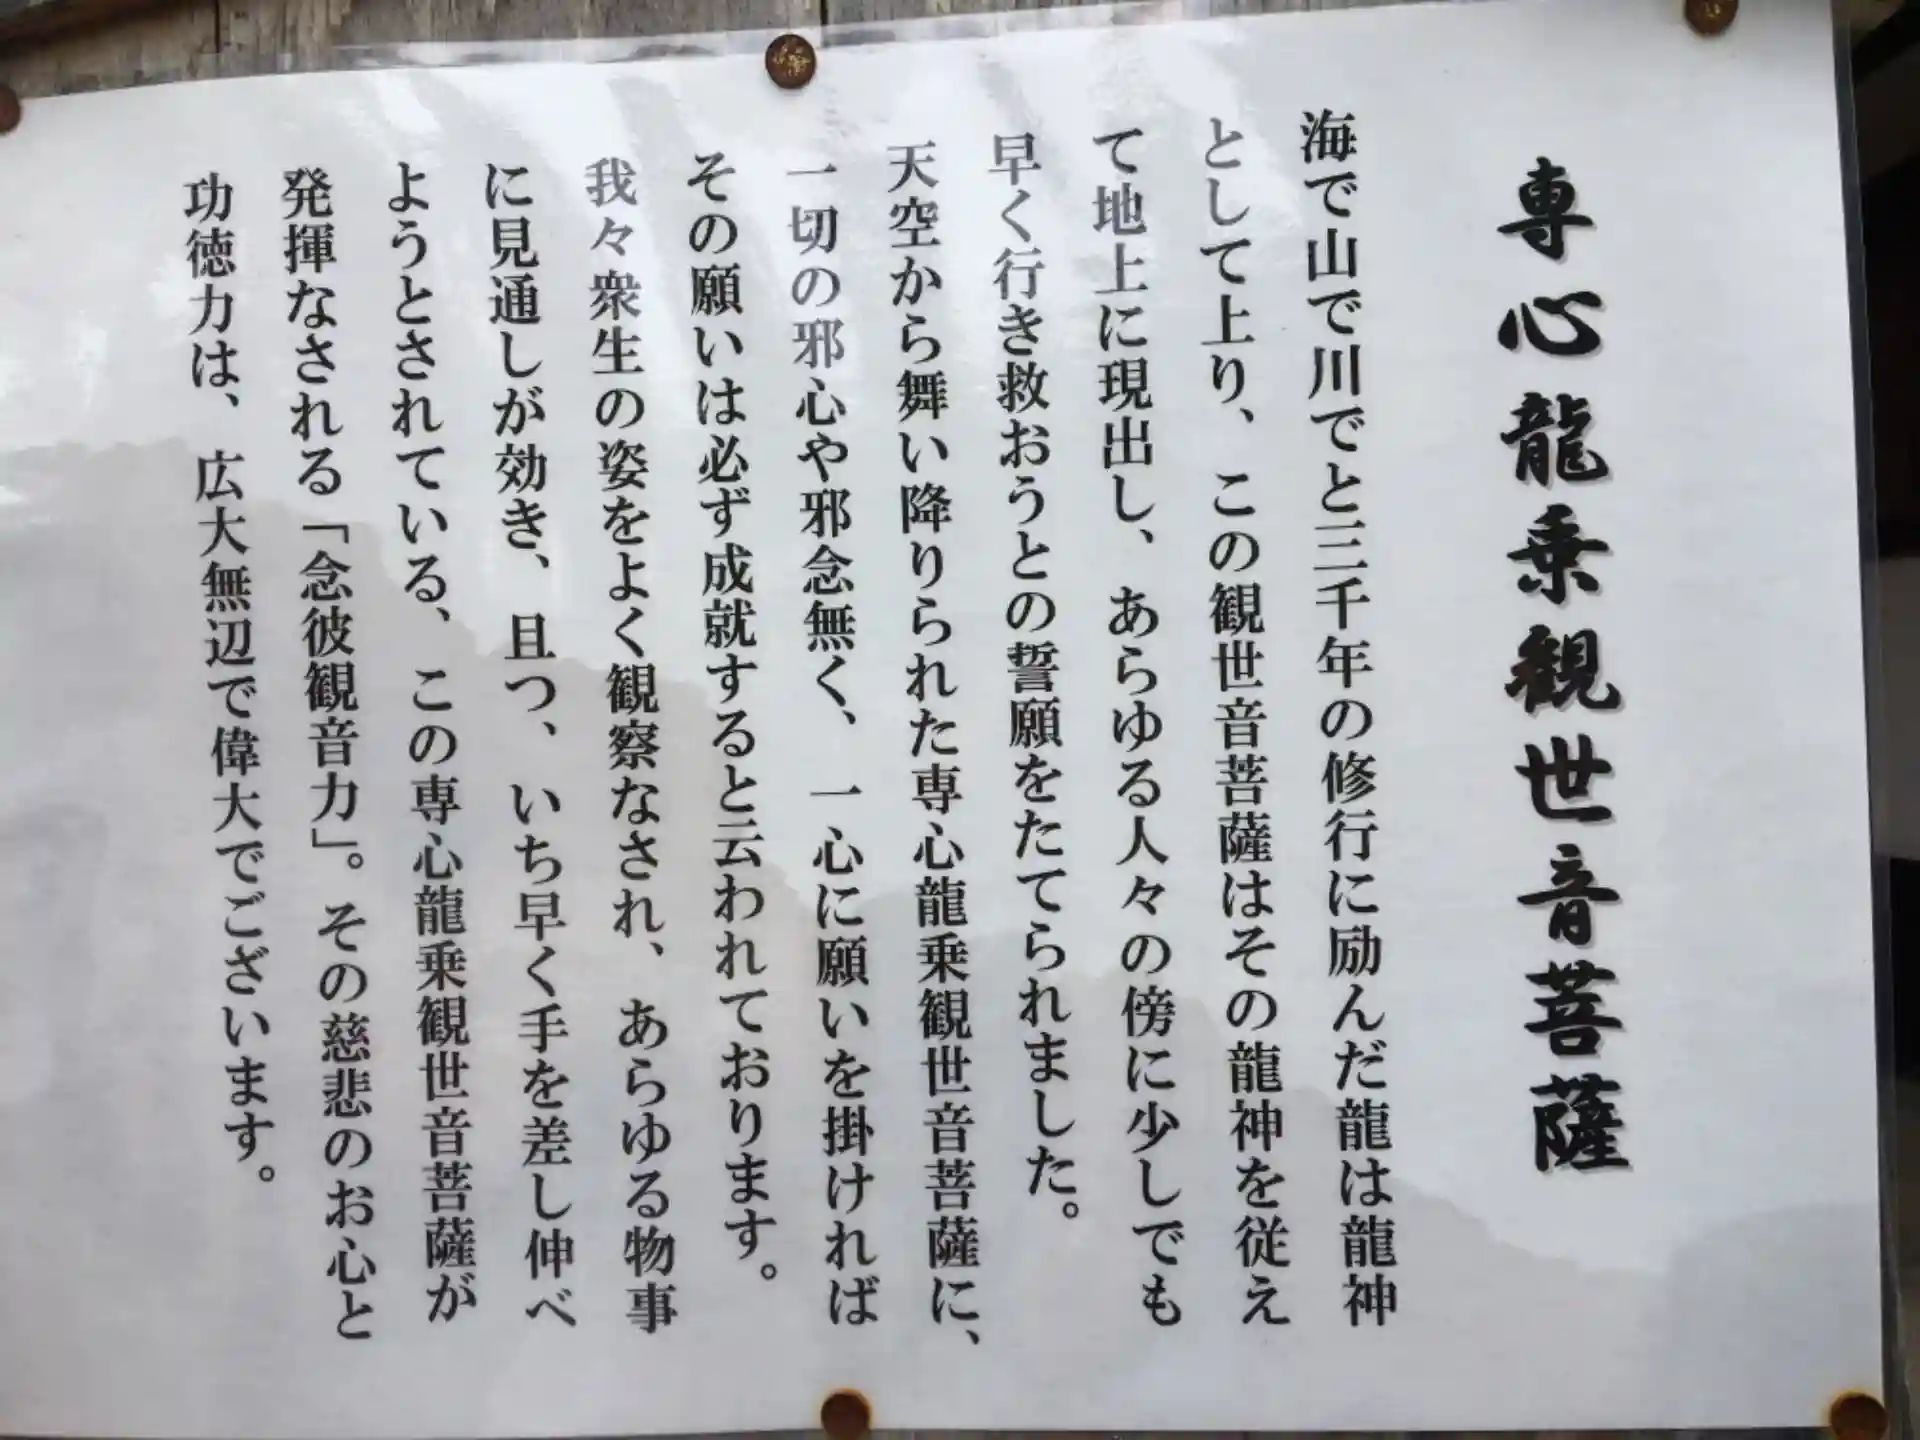 専心龍乗観世音菩薩
海で山で川でと三千年の修行に励んだ龍は龍神
として上り、この観世音菩薩はその龍神を従え
て地上に現出し、あらゆる人々の傍に少しでも
早く行き救おうとの誓願をたてられました。
天空から舞い降りられた専心龍乗観世音菩薩に、
一切の邪心や邪念無く、一心に願いを掛ければ
その願いは必ず成就すると云われております。
我々衆生の姿をよく観察なされ、あらゆる物事
に見通しが効き、且つ、いち早く手を差し伸べ
ようとされている、この専心龍乗観世音菩薩が
発揮なされる「念彼観音力」。その慈悲のお心と
功徳力は、広大無辺で偉大でございます。